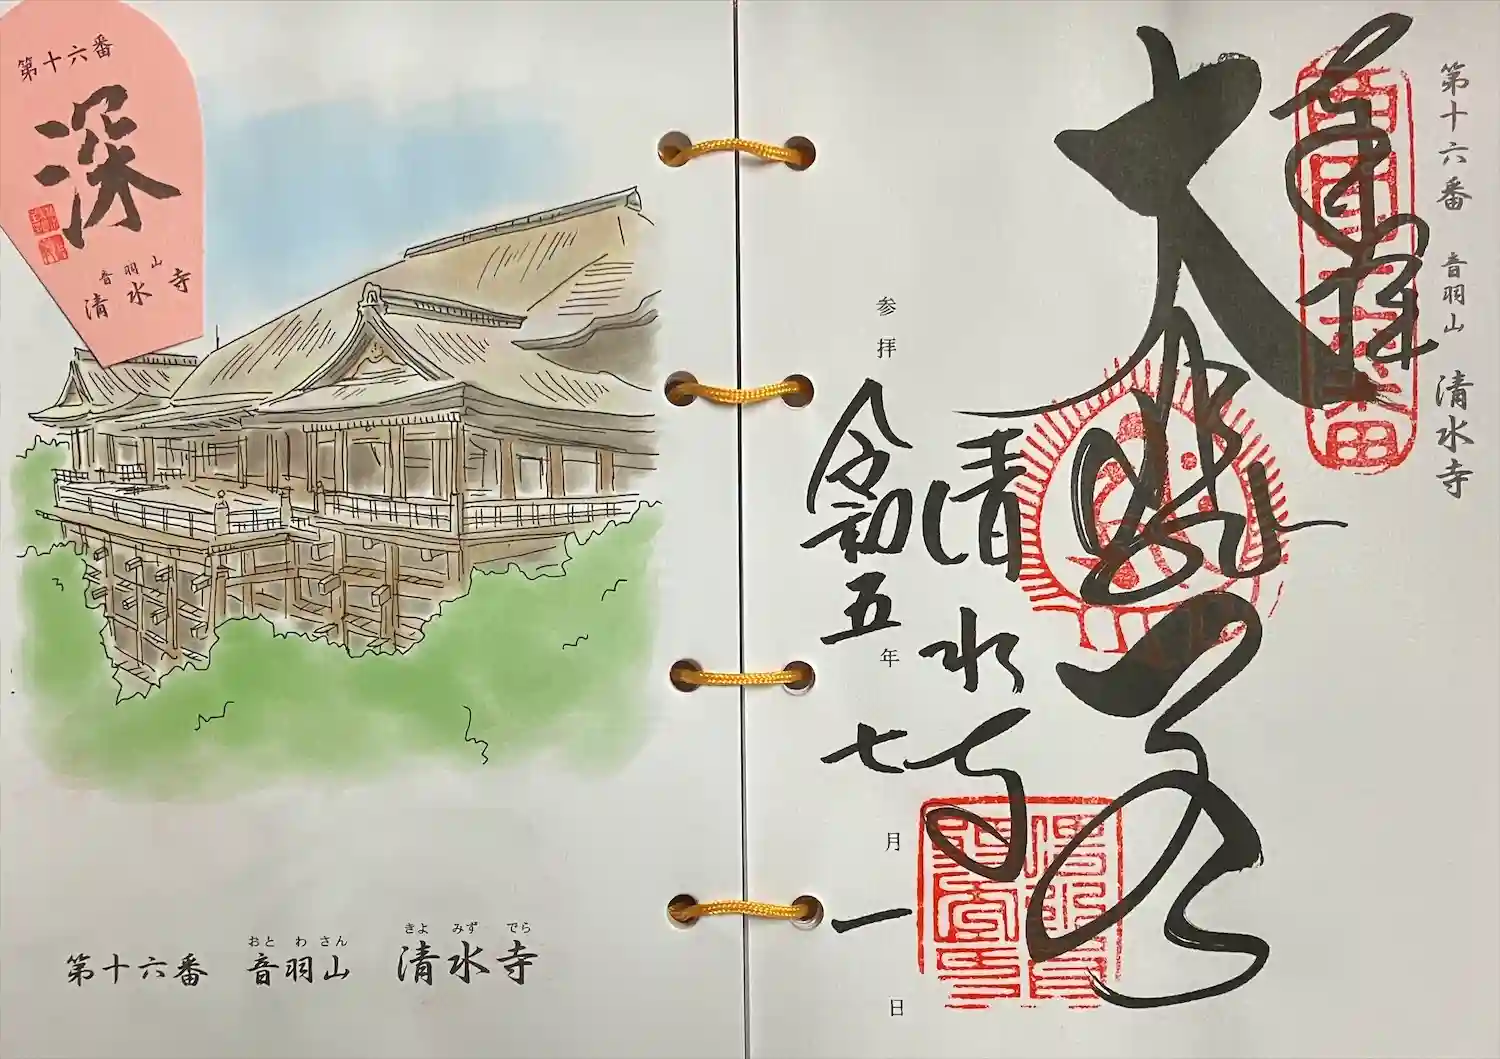 第十六番
深
音羽山
清水寺
おとわさん きよみずでら
第十六番 音羽山 清水寺
第十六番 音羽山 清水寺
奉拝
西国十六番
大悲閣
清水寺
参拝 令和五年七月一日